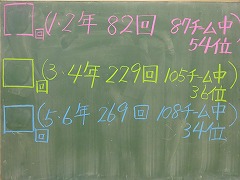 回(1・2年 82回 87チーム中
54位
回(3・4年 229回 105チーム中
36位
回(5・6年 269回 108チーム中
34位